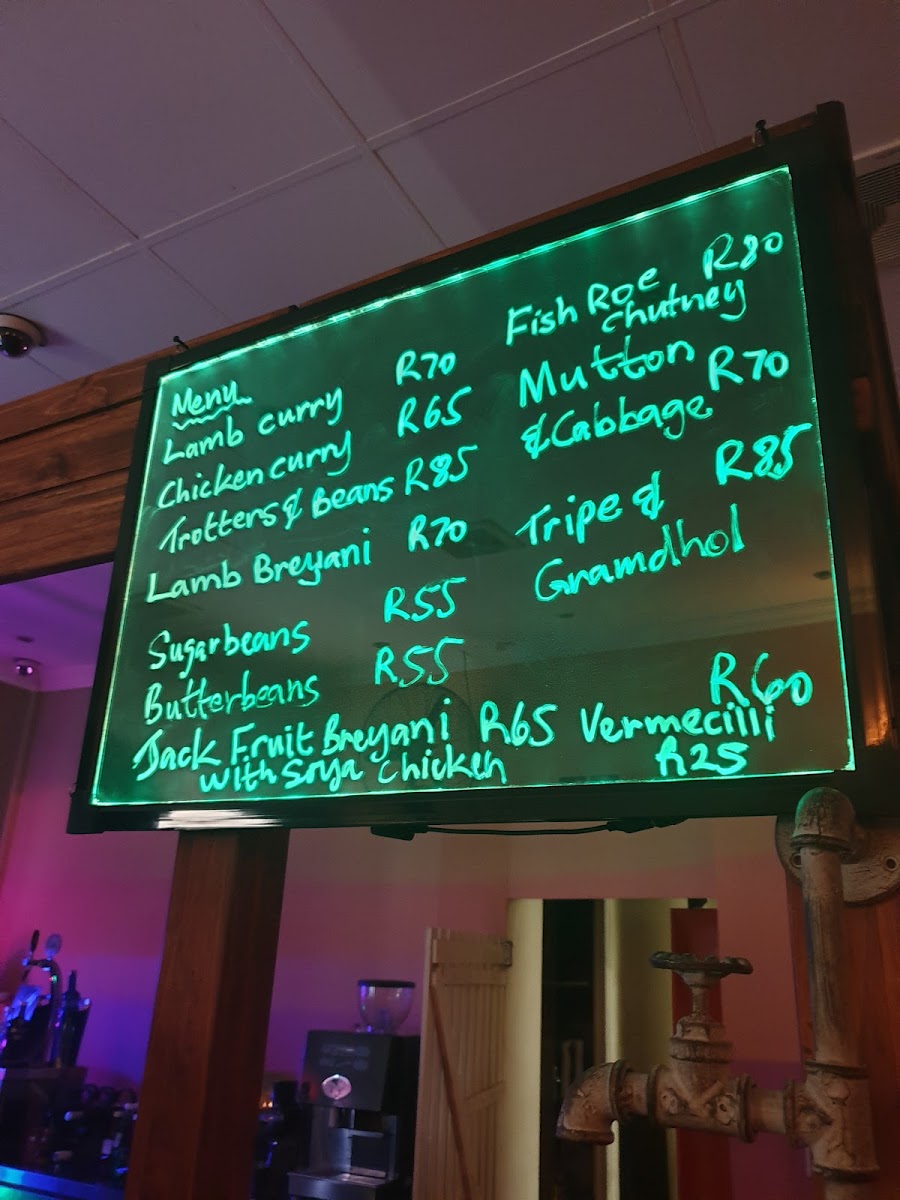 Menu
Lamb curry R70
Chicken curry R65
Trotters & Beans R85
Lamb Breyani R70
Sugarbeans R55
Butterbeans R55
Jack Fruit Breyani R65
with Soya chicken
Fish Roe R80
chutney
Mutton R70
& Cabbage
Tripe & R85
Gramdhol
R60
Vermecilli
R25